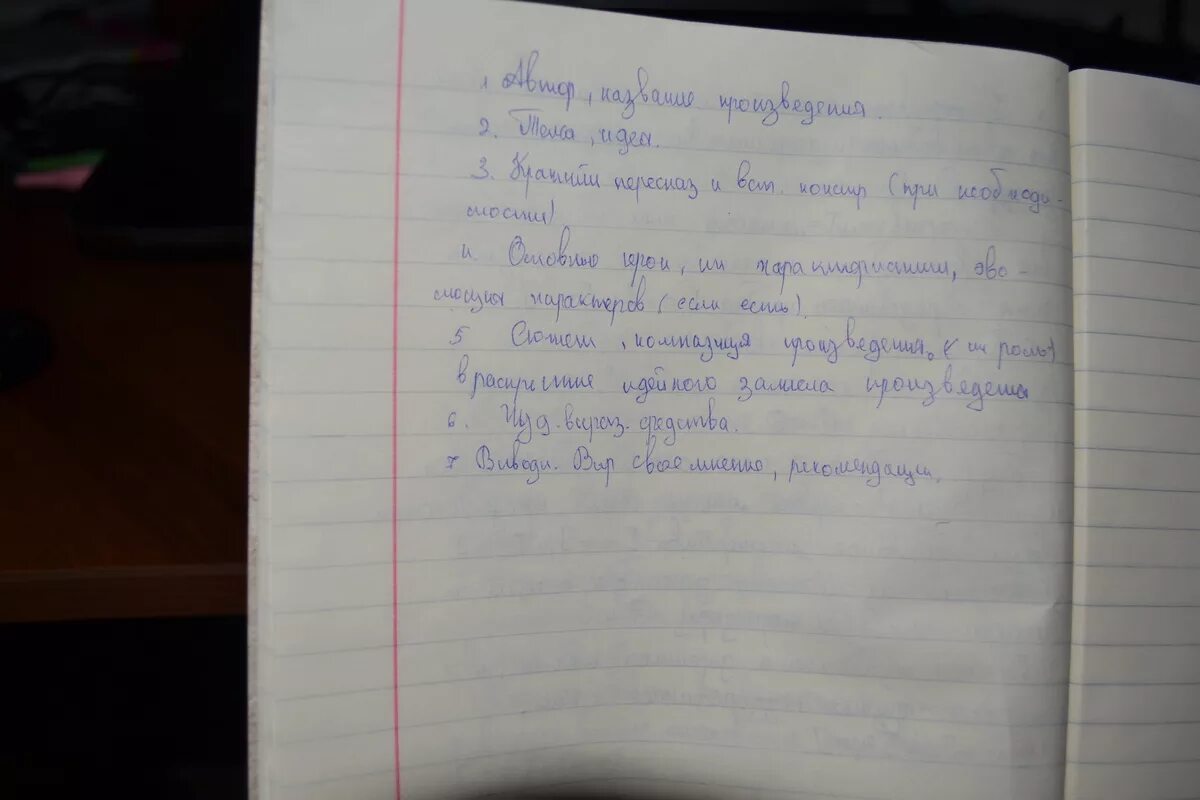 1 Автор, название произведения.
2. Тема, идея.
3. Краткий пересказ и вст. (при необходи-
мости)
4. Основные герои, их характеристики, эво-
люция характеров (если есть).
5 Сюжет, композиция произведения. (их роль)
в раскрытие идейного замысла произведения
6. Худ. выраз. средства.
7 Выводи. Выр свое мнение, рекомендации.